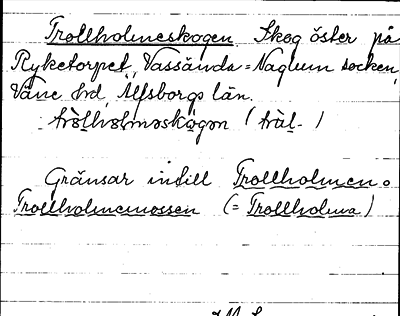 Trollholmeskogen. Skog öster på
Ryketorpet, Vassända-Naglum socken,
Väne hd, Älfsborgs län.
Gränsar intill Trollholmen o
Trollholmemossen (= Trollholma)